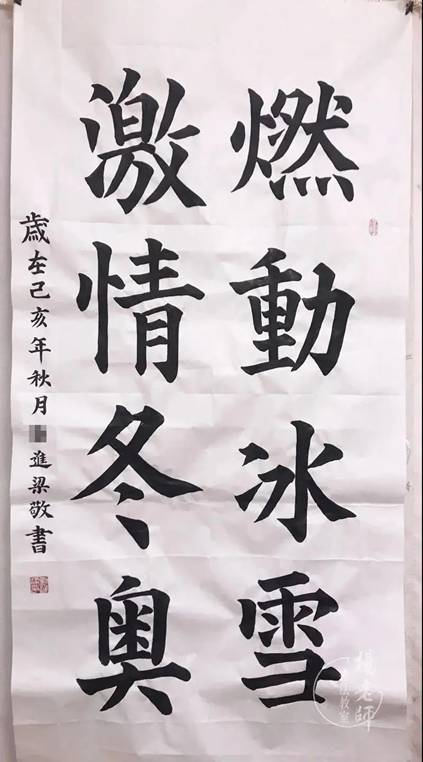 燃動冰雪
激情冬奥
歲在己亥年秋月
進梁敬書
楊老師
法教室